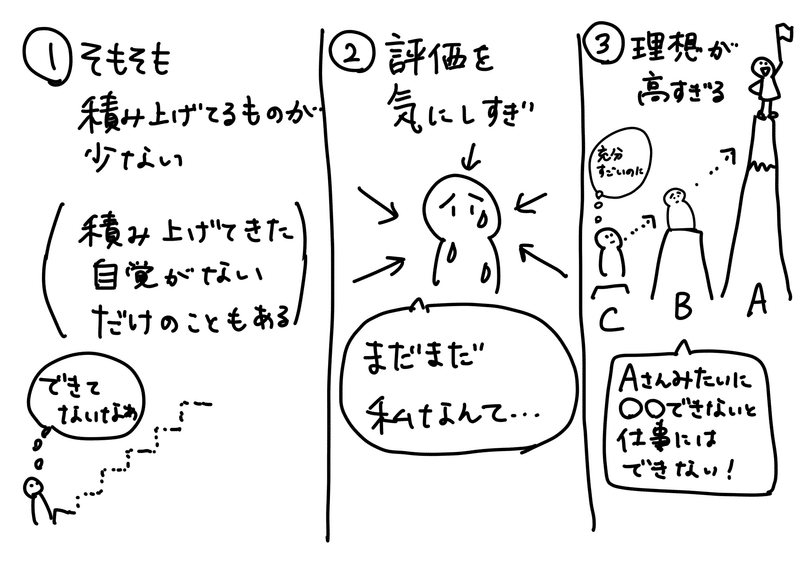 ① そもそも
積み上げてるものが
少ない
(積み上げてきた
自覚がない
だけのこともある)
できて
ないなぁ
② 評価を
気にしすぎ
まだまだ
私なんて…
③ 理想が
高すぎる
充分
すごいのに
C
B
A
Aさんみたいに
○○できないと
仕事には
できない!